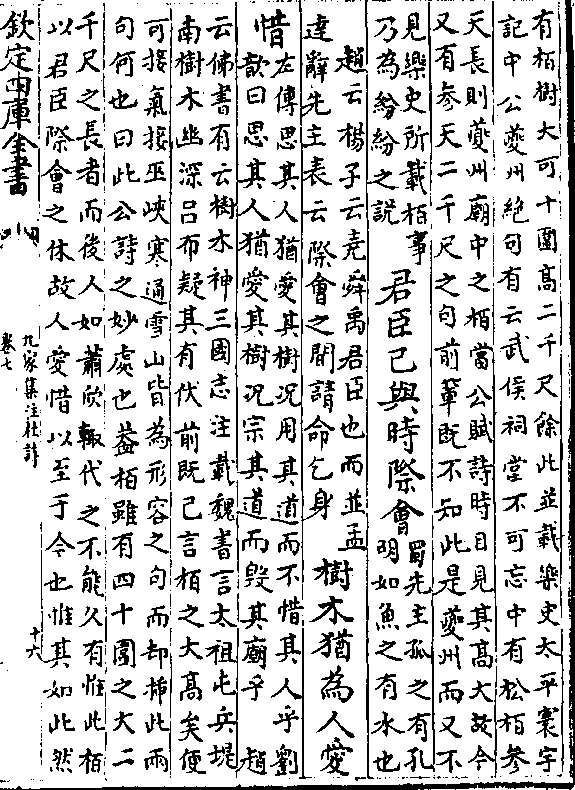 有栢樹大可十圍髙二千尺餘此並載樂史太平寰宇
記中公夔州絶句有云武侯祠堂不可忘中有松栢參
天長則夔州廟中之栢當公賦詩時目見其髙大故今
又有參天二千尺之句前輩既不知此是夔州而又不
見樂史所載栢事
乃為紛紛之説
君臣已與時際會
蜀先主孤之有孔
明如魚之有水也
趙云楊子云堯舜禹君臣也而並孟
達辭先主表云際會之間請命乞身
樹木猶為人愛
惜
左傳思其人猶愛其樹况用其道而不惜其人乎劉
歆曰思其人猶愛其樹况宗其道而毁其廟乎 趙
云佛書有云樹木神三國志注載魏書言太祖屯兵堤
南樹木幽深吕布疑其有伏前既已言栢之大髙矣便
可接氣接巫峽寒通雪山皆為形容之句而却揷此兩
句何也曰此公詩之妙處也葢栢雖有四十圍之大二
千尺之長者而後人如蕭欣輙代之不能久有惟此栢
以君臣際會之休故人愛惜以至于今也惟其如此然
欽定四庫全書
九家集注杜詩
卷七
十六